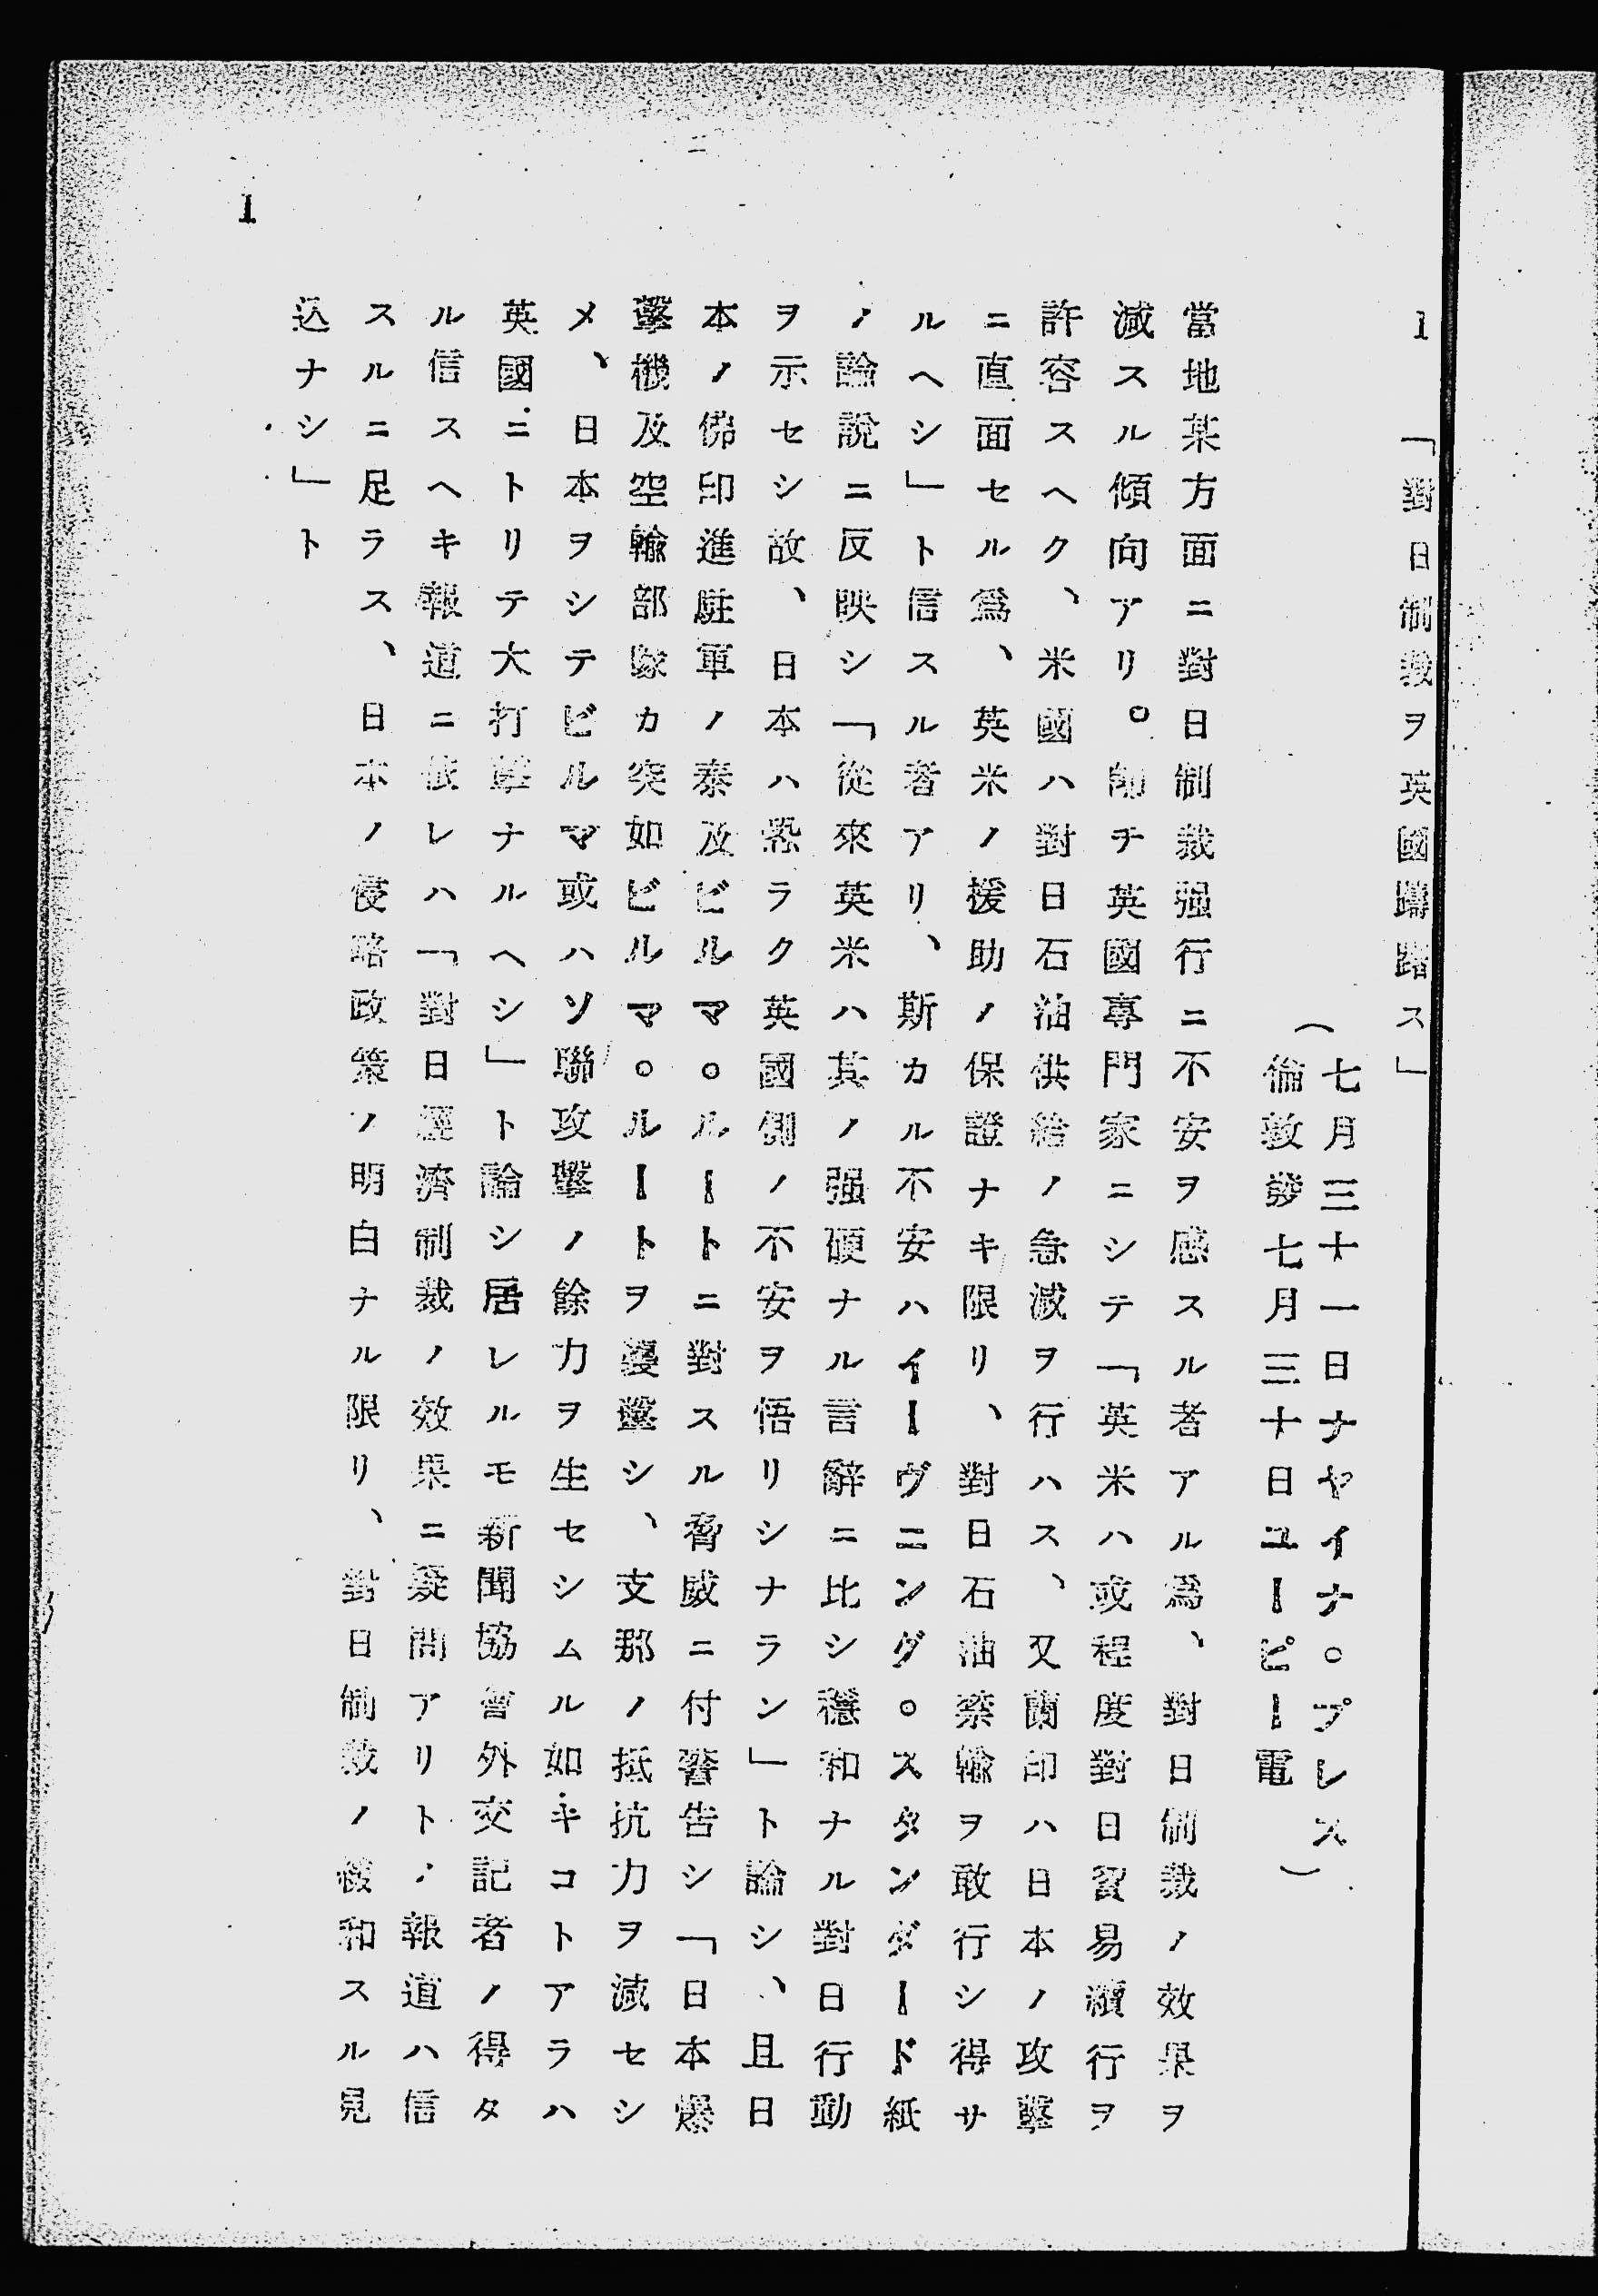 1 「對日制裁ヲ英國躊躇ス」
(七月三十一日ナヤイナ。プレス
倫敦發七月三十日ユーピー電)
當地某方面ニ對日制裁强行ニ不安ヲ感スル者アル爲、對日制裁ノ效果ヲ
減スル傾向アリ。卽チ英國專門家ニシテ「英米ハ或程度對日貿易續行ヲ
許容スヘク、米國ハ對日石油供給ノ急減ヲ行ハス、又蘭印ハ日本ノ攻擊
ニ直面セル爲、英米ノ援助ノ保證ナキ限リ、對日石油禁輸ヲ敢行シ得サ
ルヘシ」ト信スル者アリ、斯カル不安ハイーヴニング。スタンダード紙
ノ論說ニ反映シ「從來英米ハ其ノ强硬ナル言辭ニ比シ穩和ナル對日行動
ヲ示セシ故、日本ハ恐ラク英國側ノ不安ヲ悟リシナラン」ト論シ、且日
本ノ佛印進駐軍ノ泰及ビルマ。ルートニ對スル脅威ニ付警告シ「日本爆
擊機及空輸部隊カ突如ビルマ。ルートヲ襲擊シ、支那ノ抵抗力ヲ減セシ
メ、日本ヲシテビルマ或ハソ聯攻擊ノ餘力ヲ生セシムル如キコトアラハ
英國ニトリテ大打擊ナルヘシ」ト論シ居レルモ新聞協會外交記者ノ得タ
ル信スヘキ報道ニ依レハ「對日經濟制裁ノ效果ニ疑問アリトノ報道ハ信
スルニ足ラス、日本ノ侵略政策ノ明白ナル限リ、對日制裁ノ緩和スル見
込ナシ」ト
1